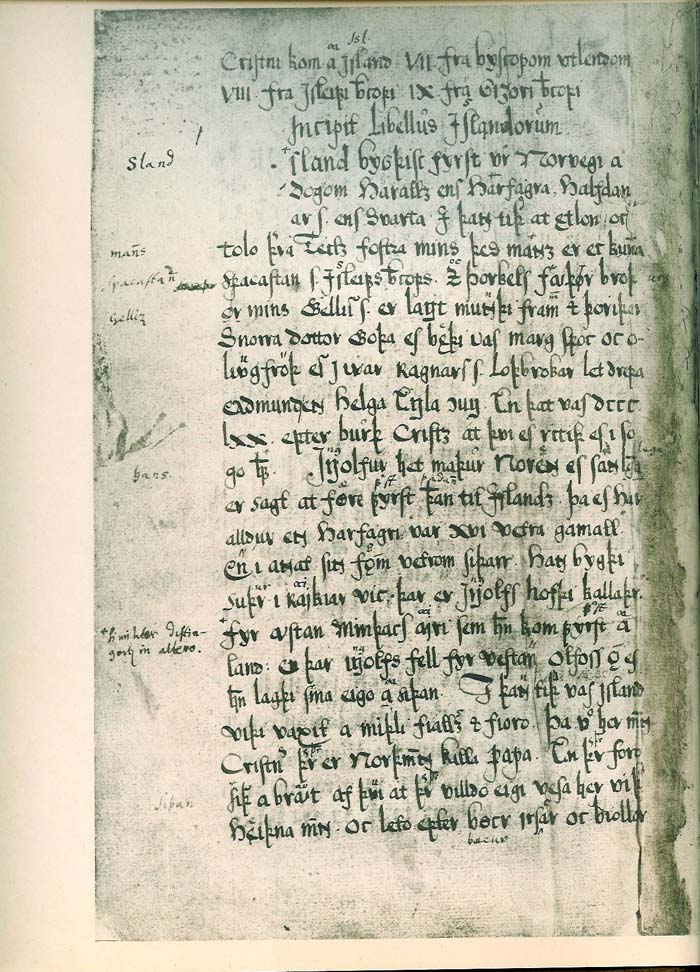 Isl.
Cristni kom a Island VII fra byscopom vtlendom
VIII fra Isleifi bꝰcopi IX fra Gizori bꝰcopi
Incipit Libellus Islandorum
Sland
+ sland bygþisc fyrst vr Norvegi a
dogom Haralldz ens Harfagra, Halfdan
ar s. ens Svarta I þan tiþ at etlon oc
manns
tolo þra Teitz fostra mins þes manz er ec kunna
spacastan
spacastan s. Isleifs bꝰcops. oc þorkels faþor broþ
Gelliz
or mins Gellis s. er langt munþi fram oc þoriþar
Snorra dottor Goþa es bęþi vas marg spoc oc o-
liugfroþ es Ivar Ragnars s. Loþbrokar let drepa
Eadmund en Helga Engla En þat vas dccc
LXX. epter burþ Cristz at þvi es ritit es i so
hans.
go h̄s. Ingolfur het maþur Noren es
er sagt at fore fyrst þan til Islandz þa es Har
alldur en Harfagri var XVI vetra gamall
en i anat sin fom vetrom siþarr. Han bygþi
suþr i Raykiar vic. þar er Ingolfs hofþi kallaþr.
fyr austan Minþacs ayri sem h̄n kom fyrst a
in altero.
land: en þar Ingolfs fell fyr vestan Olfoss ǫ es
h̄n lagþi sina eigo a siþan. I þan tiþ vas Island
viþi vaxit a miþli fiallz oc fioro. þa vo her m̄n
Cristn þr er Norþmen kalla Papa. En þr foro
siþan
siþ a braut af þvi at þr villdo eigi vesa her viþ
Heiþna m̄n. oc leto epter bocr irsar oc biollor
bœcur